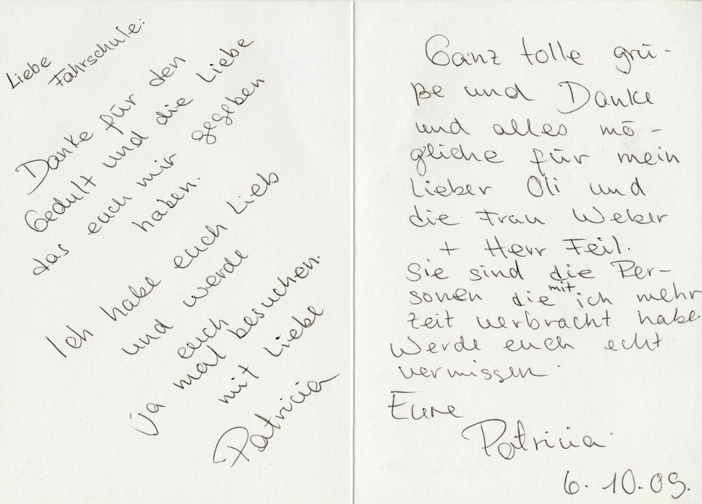 Liebe
Fahrschule:
Danke für den
Gedult und die Liebe
das euch mir gegeben
haben.
Ich habe euch Lieb
und werde
euch
Ja mal besuchen.
mit Liebe
Patricia
Ganz tolle grü-
ße und Danke
und alles mö-
gliche für mein
Lieber Oli und
die Frau Weber
+ Herr Feil.
Sie sind die Per-
sonen die mit ich mehr
Zeit verbracht habe
Werde euch echt
vermissen.
Eure
Patricia.
6.10.09.